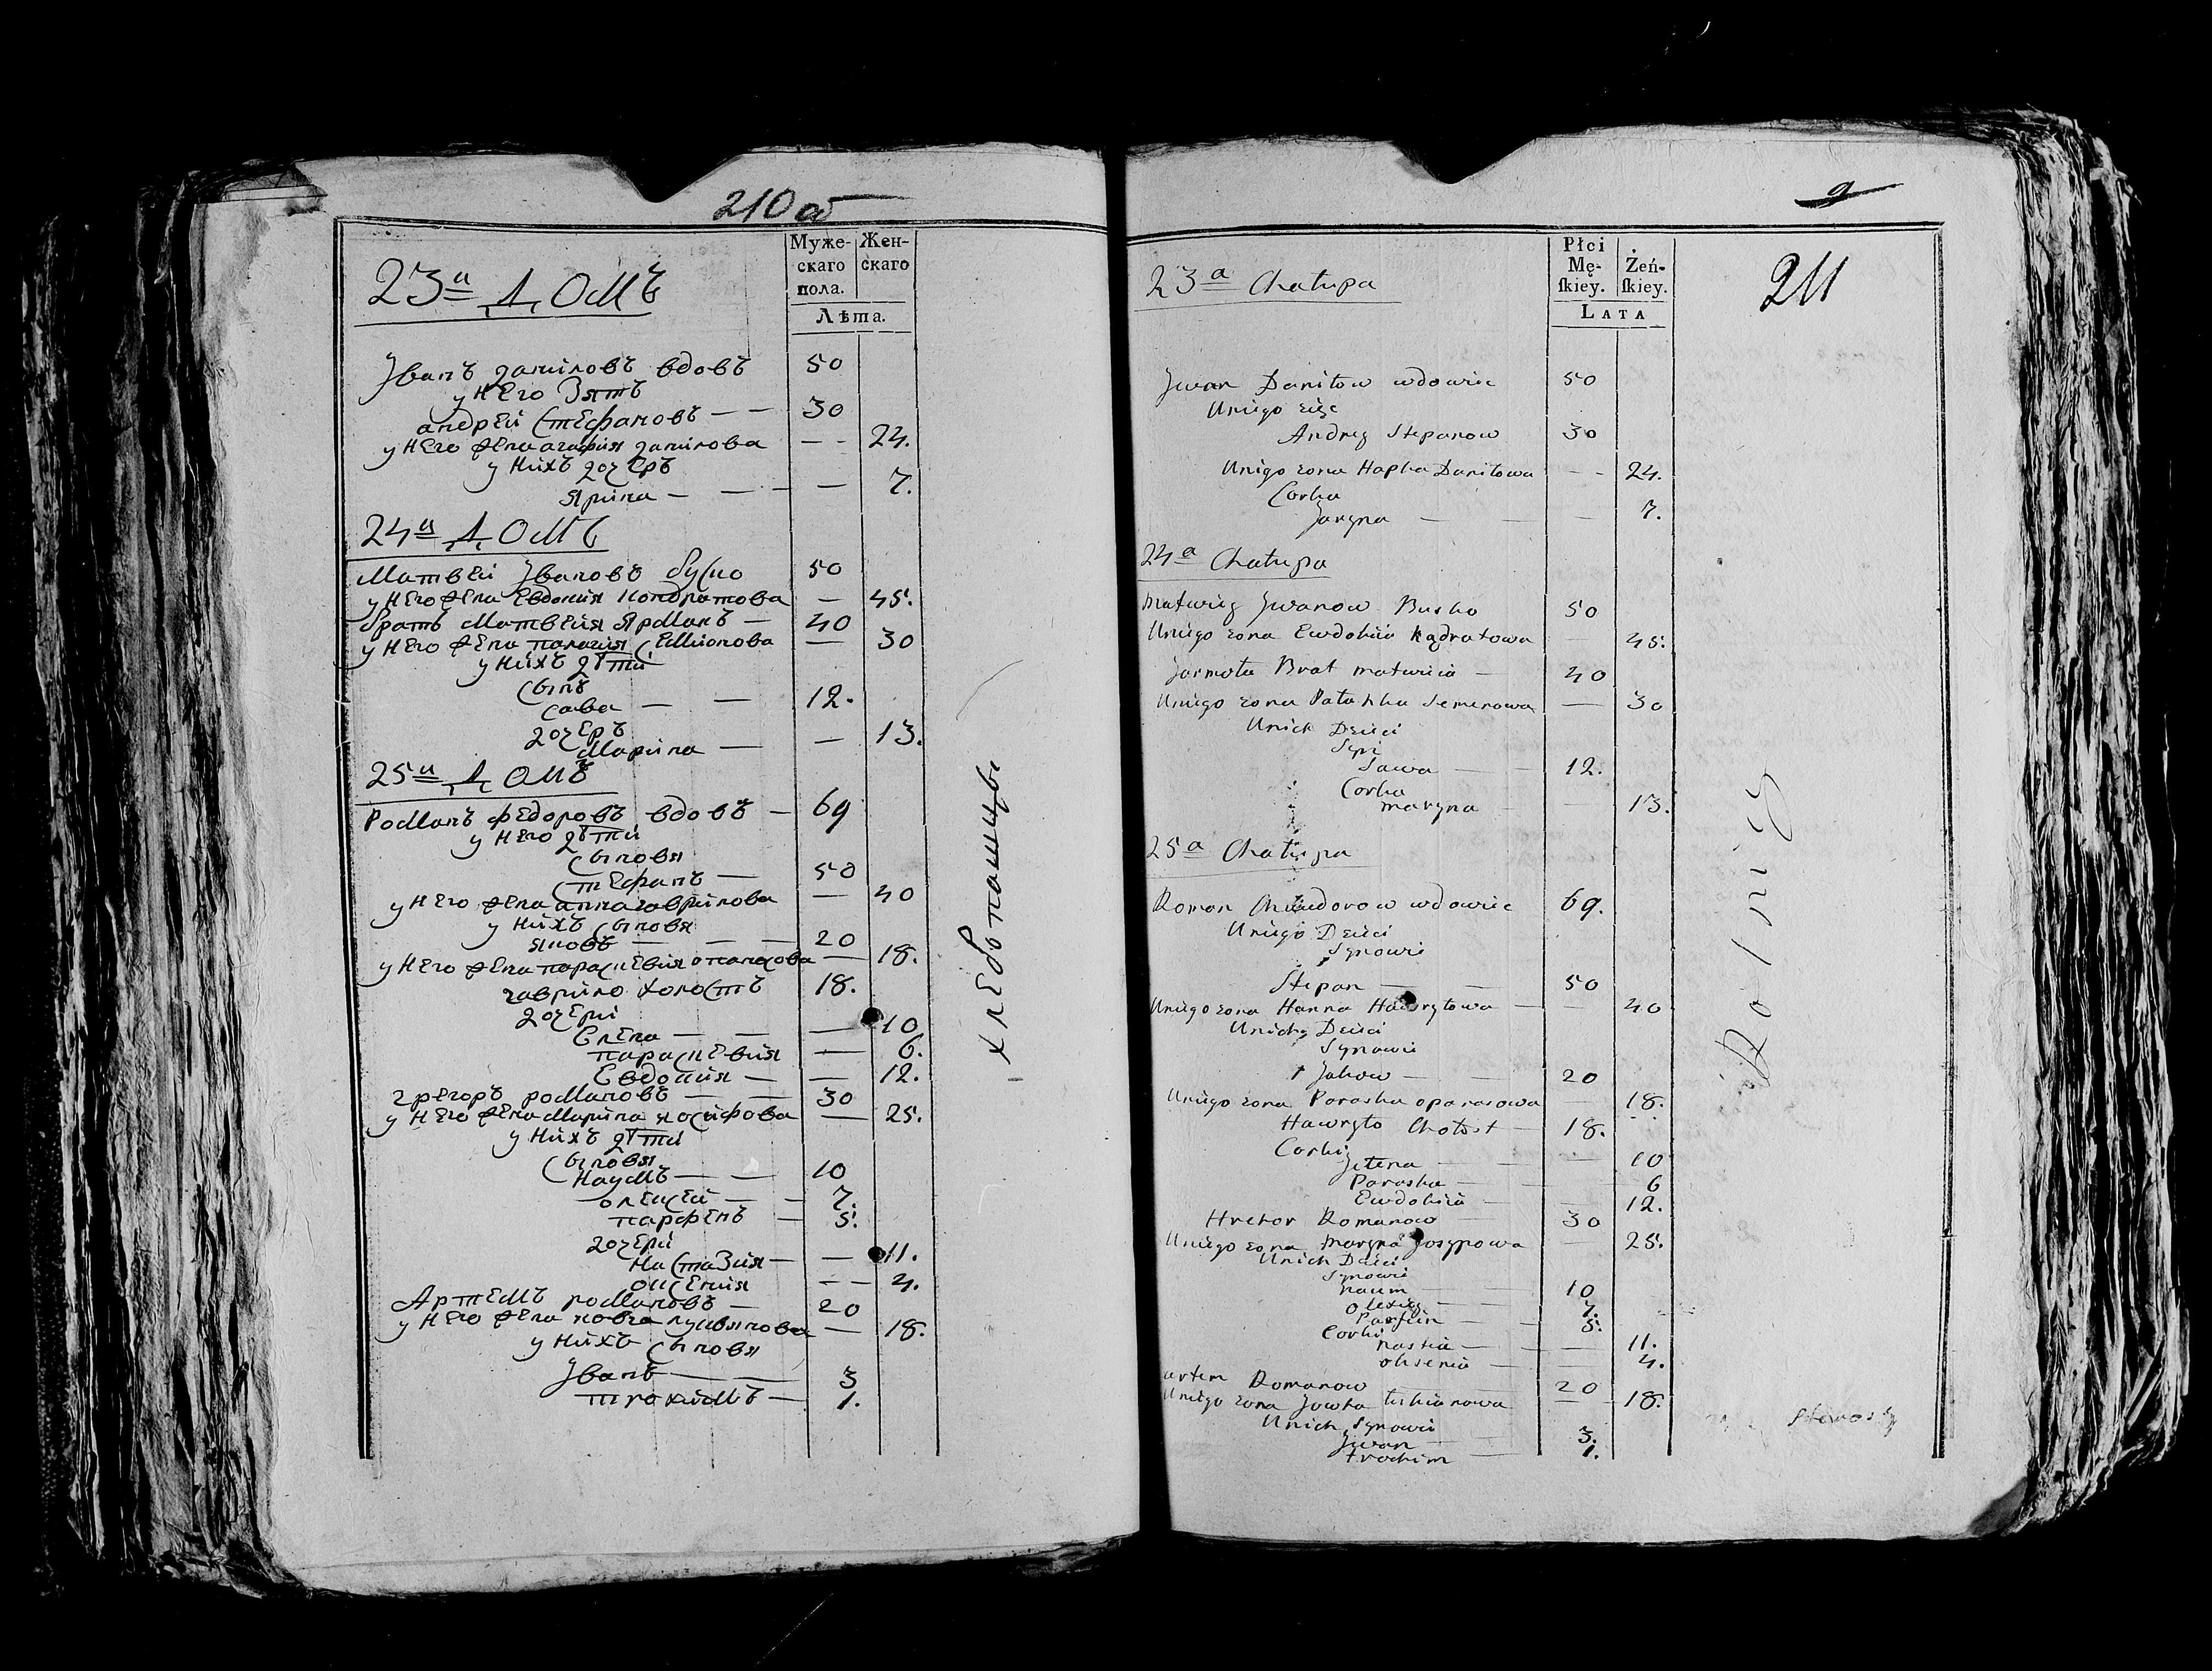 210 об
Муже- Жен-
скаго скаго
пола.
Лѣта.
23й Домъ
Іванъ даниловъ вдовъ 50
у него Зять
андрей Стефановъ — — 30
у него жена агафия данилова — - 24.
у нихъ дочеръ
Ярина — — — 7.
24й Домъ
Матвей Івановъ буско 50
у него жена Евдокия кондратова — 45.
братъ Матвея Ярмакъ — 40
у него жена палагия Семионова — 30
у нихъ дѣти
Сынъ
сава — — 12.
дочеръ
Марина — — 13.
25й Домъ
Романъ федоровъ вдовъ — 69
у него дѣти
Сыновя
Стефанъ — 50
у него жена анна гаврилова — 40
у нихъ Сыновя
яковъ — — — 20
у него жена параскевия опанасова — 18.
гаврило холостъ 18.
дочери
Елена — — — 10
параскевия — 6.
Евдокия — — 12.
грегоръ романовъ — — 30
у него жена Марина иосифова — 25.
у нихъ дѣти
Сыновя
Наумъ — — 10
олексей — — 7.
парфенъ — 5.
дочери
Настазия — — 11.
оксения — - 4.
Артемъ романовъ — 20
у него жена ковга лукянова — 18.
у нихъ Сыновя
Іванъ — — 3
трохимъ — 1.
хлебопашцы
9
211
Płci
Mę- Żeń-
ſkiey. ſkiey.
LATA
23a Chałupa
Jwan Daniłow wdowiec 50
Uniego zięc
Andrey Stepanow 30
Uniego zona Hapka Daniłowa - - 24.
Corka
Jaryna — — — 7.
24a Chałupa
Matwiey Jwanow Busko 50
Uniego zona Ewdokiia Kądratowa — 45.
Jarmoła Brat matwiia — 40
Uniego zona Pałahka Semenowa — 30
Unich Dzieci
Syn
Sawa — — 12.
Corka
maryna — — 13.
25a Chałupa
Roman Chwedorow wdowiec 69.
Uniego Dzieci
Synowie
Stepan — — 50
Uniego zona Hanna Hawryłowa — — 40
Unich Dzieci
Synowie
Jakow — — 20
Uniego zona Paraska oparasowa — 18.
Hawryło Chołost — 18.
Corki
Jełena — — 10
Paraska — — 6
Ewdokiia — — 12.
Hrehor Romanow — 30
Uniego zona Maryna Josypowa — 25.
Unich Dzieci
Synowie
naum — — 10
olexiey — — 7.
Parfien — — 5.
Corki
nastia — — — 11.
oksenia — — — 4.
artem Romanow — 20
Uniego zona Jowka łukianowa — 18.
Unich Synowie
Jwan — — 3.
trochim — 1.
Rolniy